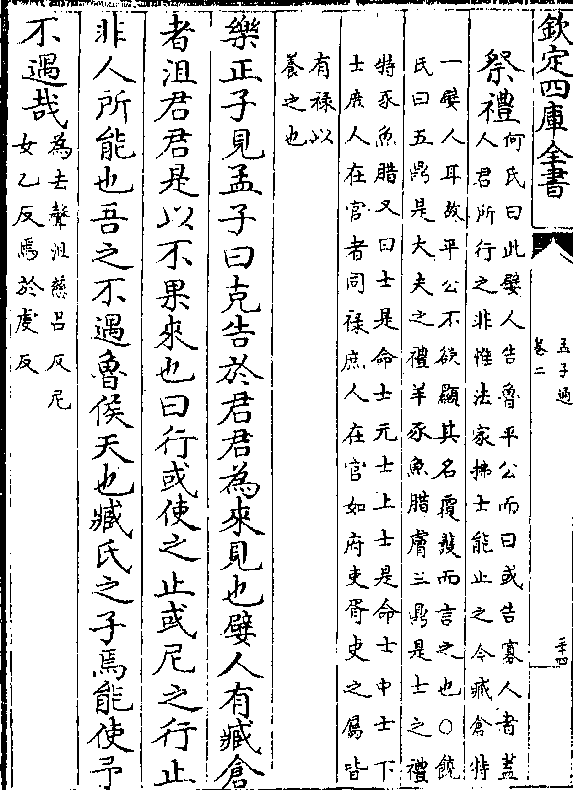 欽定四庫全書
孟子通
卷二
祭禮
何氏曰此嬖人告魯平公而曰或告寡人者蓋
人君所行之非惟法家拂士能止之今臧倉特
一嬖人耳故平公不欲顯其名覆護而言之也○饒
氏曰五鼎是大夫之禮羊豕魚腊膚三鼎是士之禮
特豕魚腊又曰士是命士元士上士是命士中士下
士庶人在官者同禄庶人在官如府吏胥吏之屬皆
有禄以
養之也
樂正子見孟子曰克告於君君為來見也嬖人有臧倉
者沮君君是以不果來也曰行或使之止或尼之行止
非人所能也吾之不遇魯侯天也臧氏之子焉能使予
不遇哉
為去聲沮慈呂反尼
女乙反焉於虔反